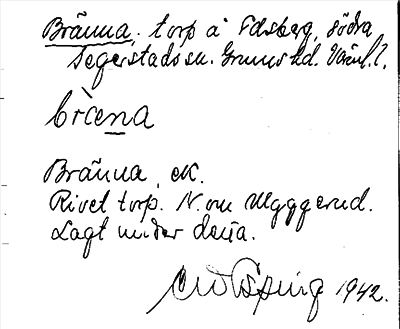 Bränna, torp å Edsberg, södra
Segerstads sn. Grums hd. Värml.
brὲena
Bränna, ek.
Rivet torp. N. om Myggerud.
Lagt under deria.
1942.